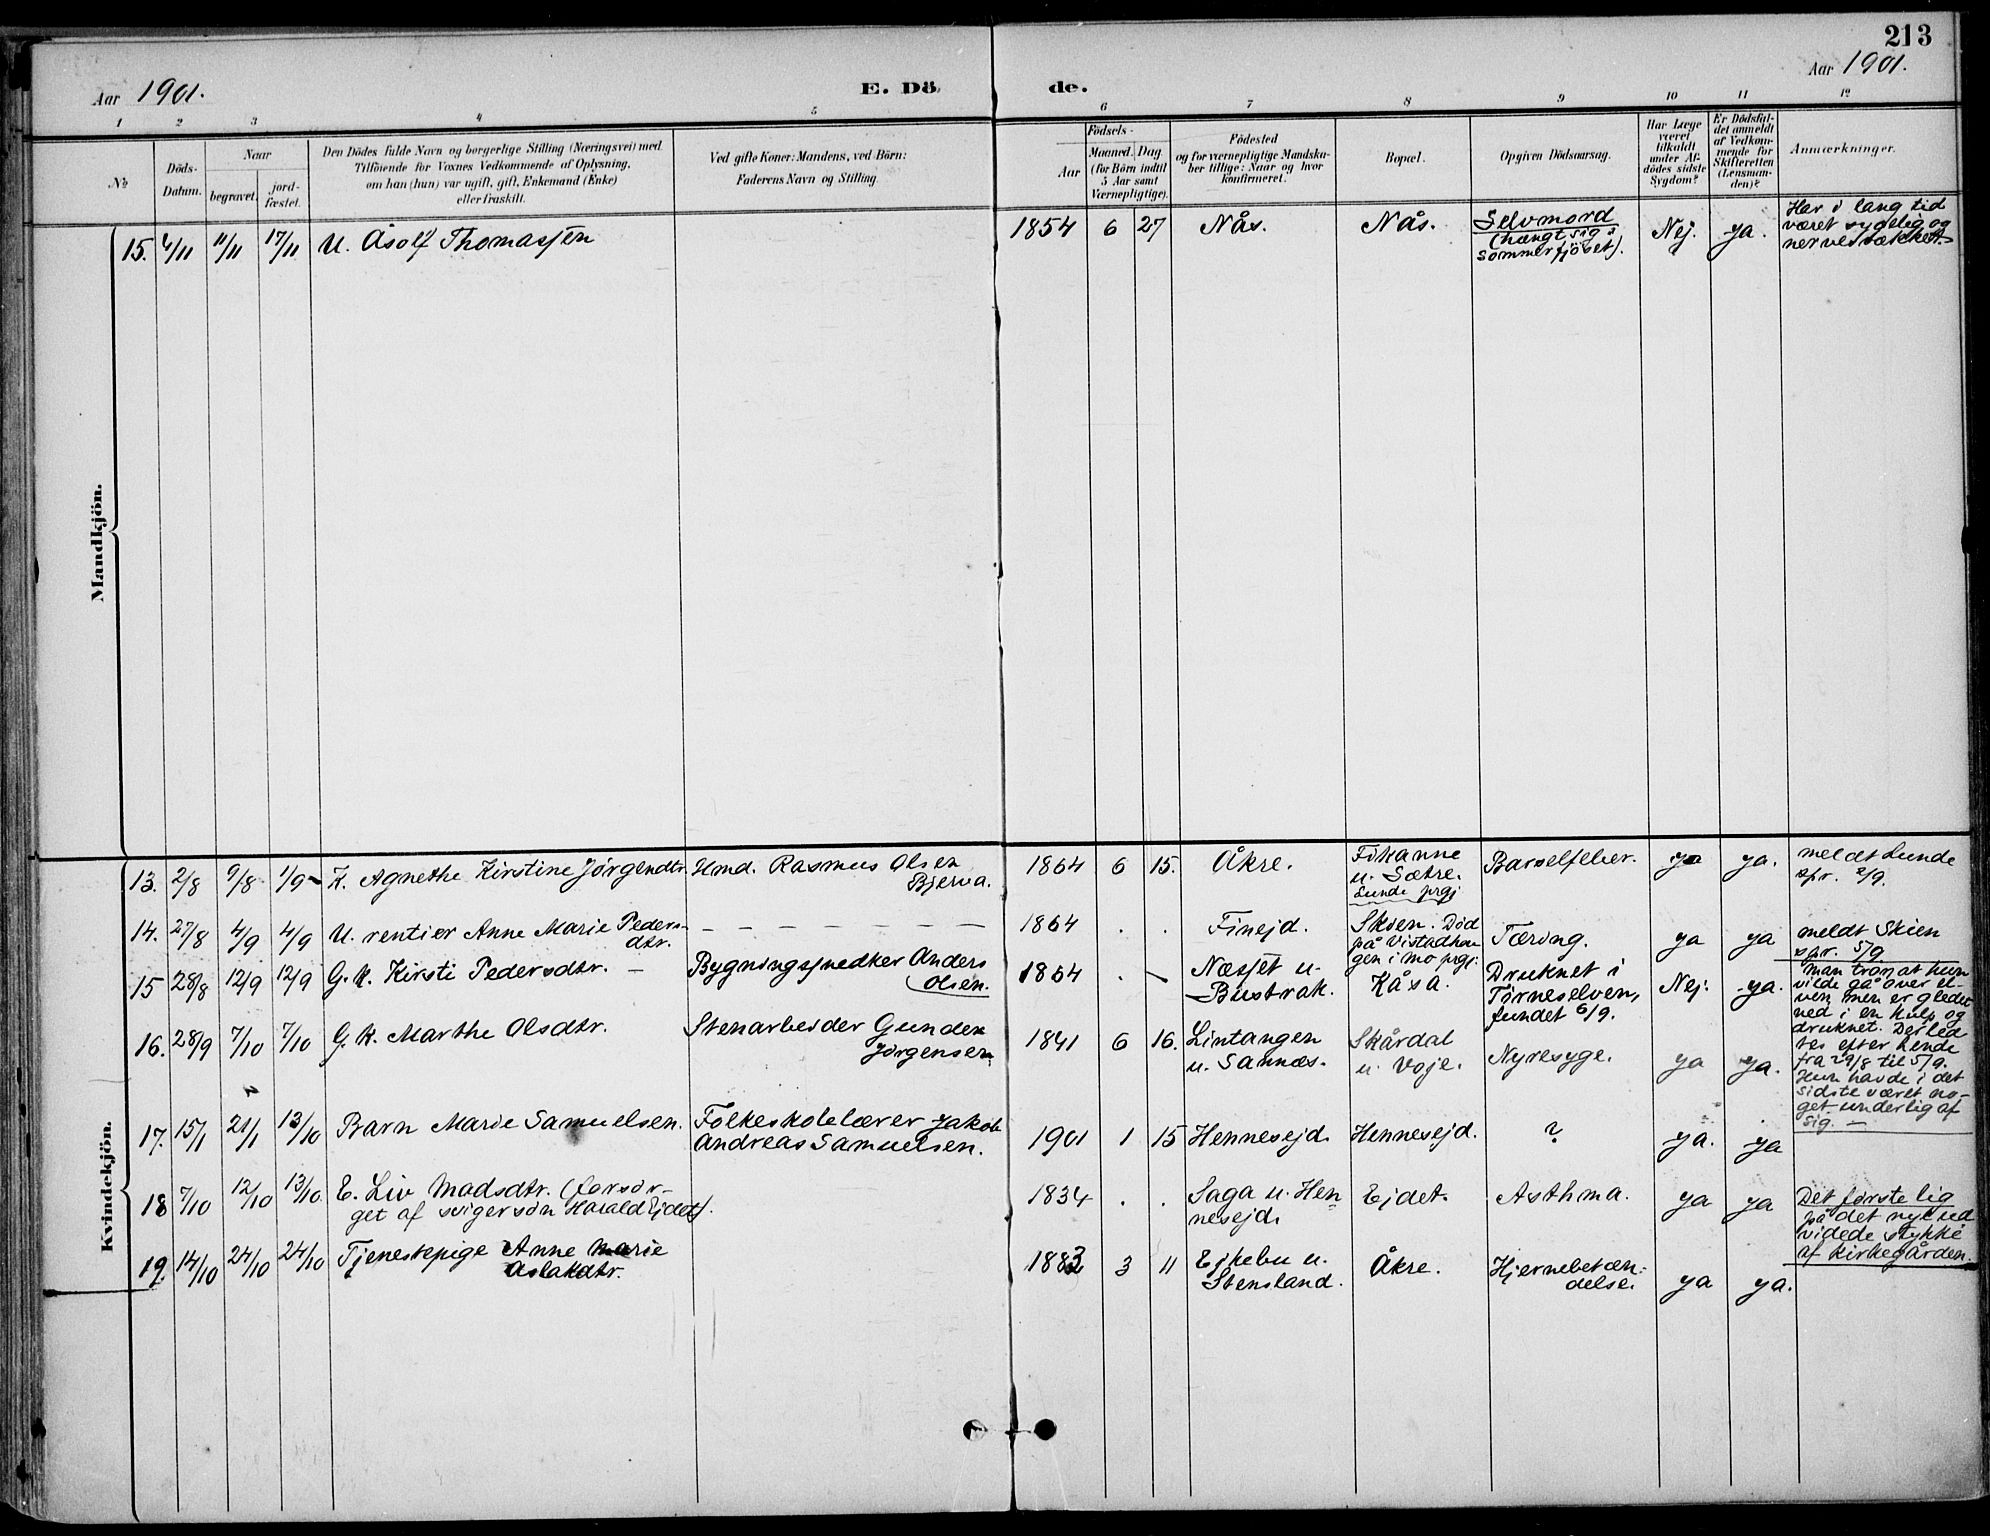 213
Aar 1901.
E. Dö
de.
Aar 1901.
1 2 3 4 5 6 7 8 9 10 11 12
№
Döds-
Datum.
Naar
begravet.
jord-
fæstet.
Den Dödes fulde Navn og borgerlige Stilling (Næringsvei) med
Tilföiende for Voxnes Vedkommende af Oplysning,
om han (hun) var ugift, gift, Enkemand (Enke)
eller fraskilt.
Ved gifte Koner: Mandens, ved Börn:
Faderens Navn og Stilling.
Födsels-
Aar
Maaned. Dag
(for Börn indtil
5 Aar samt
Værnepligtige).
Födested
og for værnepligtige Mandska-
ber tillige: Naar og hvor
konfirmeret.
Bopæl.
Opgiven Dödsaarsag.
Har Læge
været
tilkaldt
under Af-
dödes sidste
Sygdom?
Er Dödsfal-
det anmeldt
af Vedkom-
mende for
Skifteretten
(Lensman-
den)?
Anmærkninger.
Mandkjön.
15. 11/11 17/11 U. Åsolf Thomassen
1854 6 27 Nås. Nås.
Selvmord
(hængt sig i
sommerfjöset).
Nej. ja.
Har i lang tid
været sygelig og
nervesvækket.
Kvindekjön.
13. 2/8 9/8 1/9 K. Agnethe Kirstine Jørgendtr. Hmd. Rasmus Olsen
Bjerva.
1864 6 15. Åkre.
u. Sætre.
Lunde prgj
Barselfeber. ja ja.
meldt Lunde
spr. 2/9.
14. 27/8 4/9 4/9 U. rentier Anne Marie Peders-
dtr.
1864 . . Finejd.
Skien. Död
på Vistadhau
gen i Mo prgj.
Tæring. ja ja
meldt Skien
spr. 5/9.
15 28/8 12/9 12/9 G. k. Kirsti Pedersdtr. – Bygningssnedker Anders
Olsen.
1864 . – Næsset u.
Bustrak.
Kåsa.
Druknet i
Tørneselven,
fundet 6/9.
Nej. ja.
Man tror at hun
vilde gå over el-
ven men er gledet
ned i en kulp og
druknet. Der led
tes efter hende
fra 29/8 til 5/9.
Hun havde i det
sidste været no-
get underlig af
sig. –
16. 28/9 7/10 7/10 G. k. Marthe Olsdtr. Stenarbeider Gunder
Jørgensen
1841 6 16. Lintangen
u. Sannæs.
Skårdal
u. Voje.
Nyresyge. ja ja.
17. 15/1 21/1 13/10 Barn Marie Samuelsen. Folkeskolelærer Jakob
Andreas Samuelsen.
1901 1 15 Hennesejd. Hennesejd. ? ja. ja
18 7/10 12/10 13/10 E. Liv Madsdtr. (forsør-
get af svigersøn Harald Ejdet).
1834 . . Saga u. Hen
nesejd.
Ejdet. Asthma. ja ja
Det første lig
på det nye ud
videde stykke
af kirkegården.
19. 14/10 24/10 24/10 Tjenestepige Anne Marie
Aslakdtr.
1883 3 11 Ejkebu u.
Stensland.
Åkre.
Hjernebetæn-
delse.
ja ja.